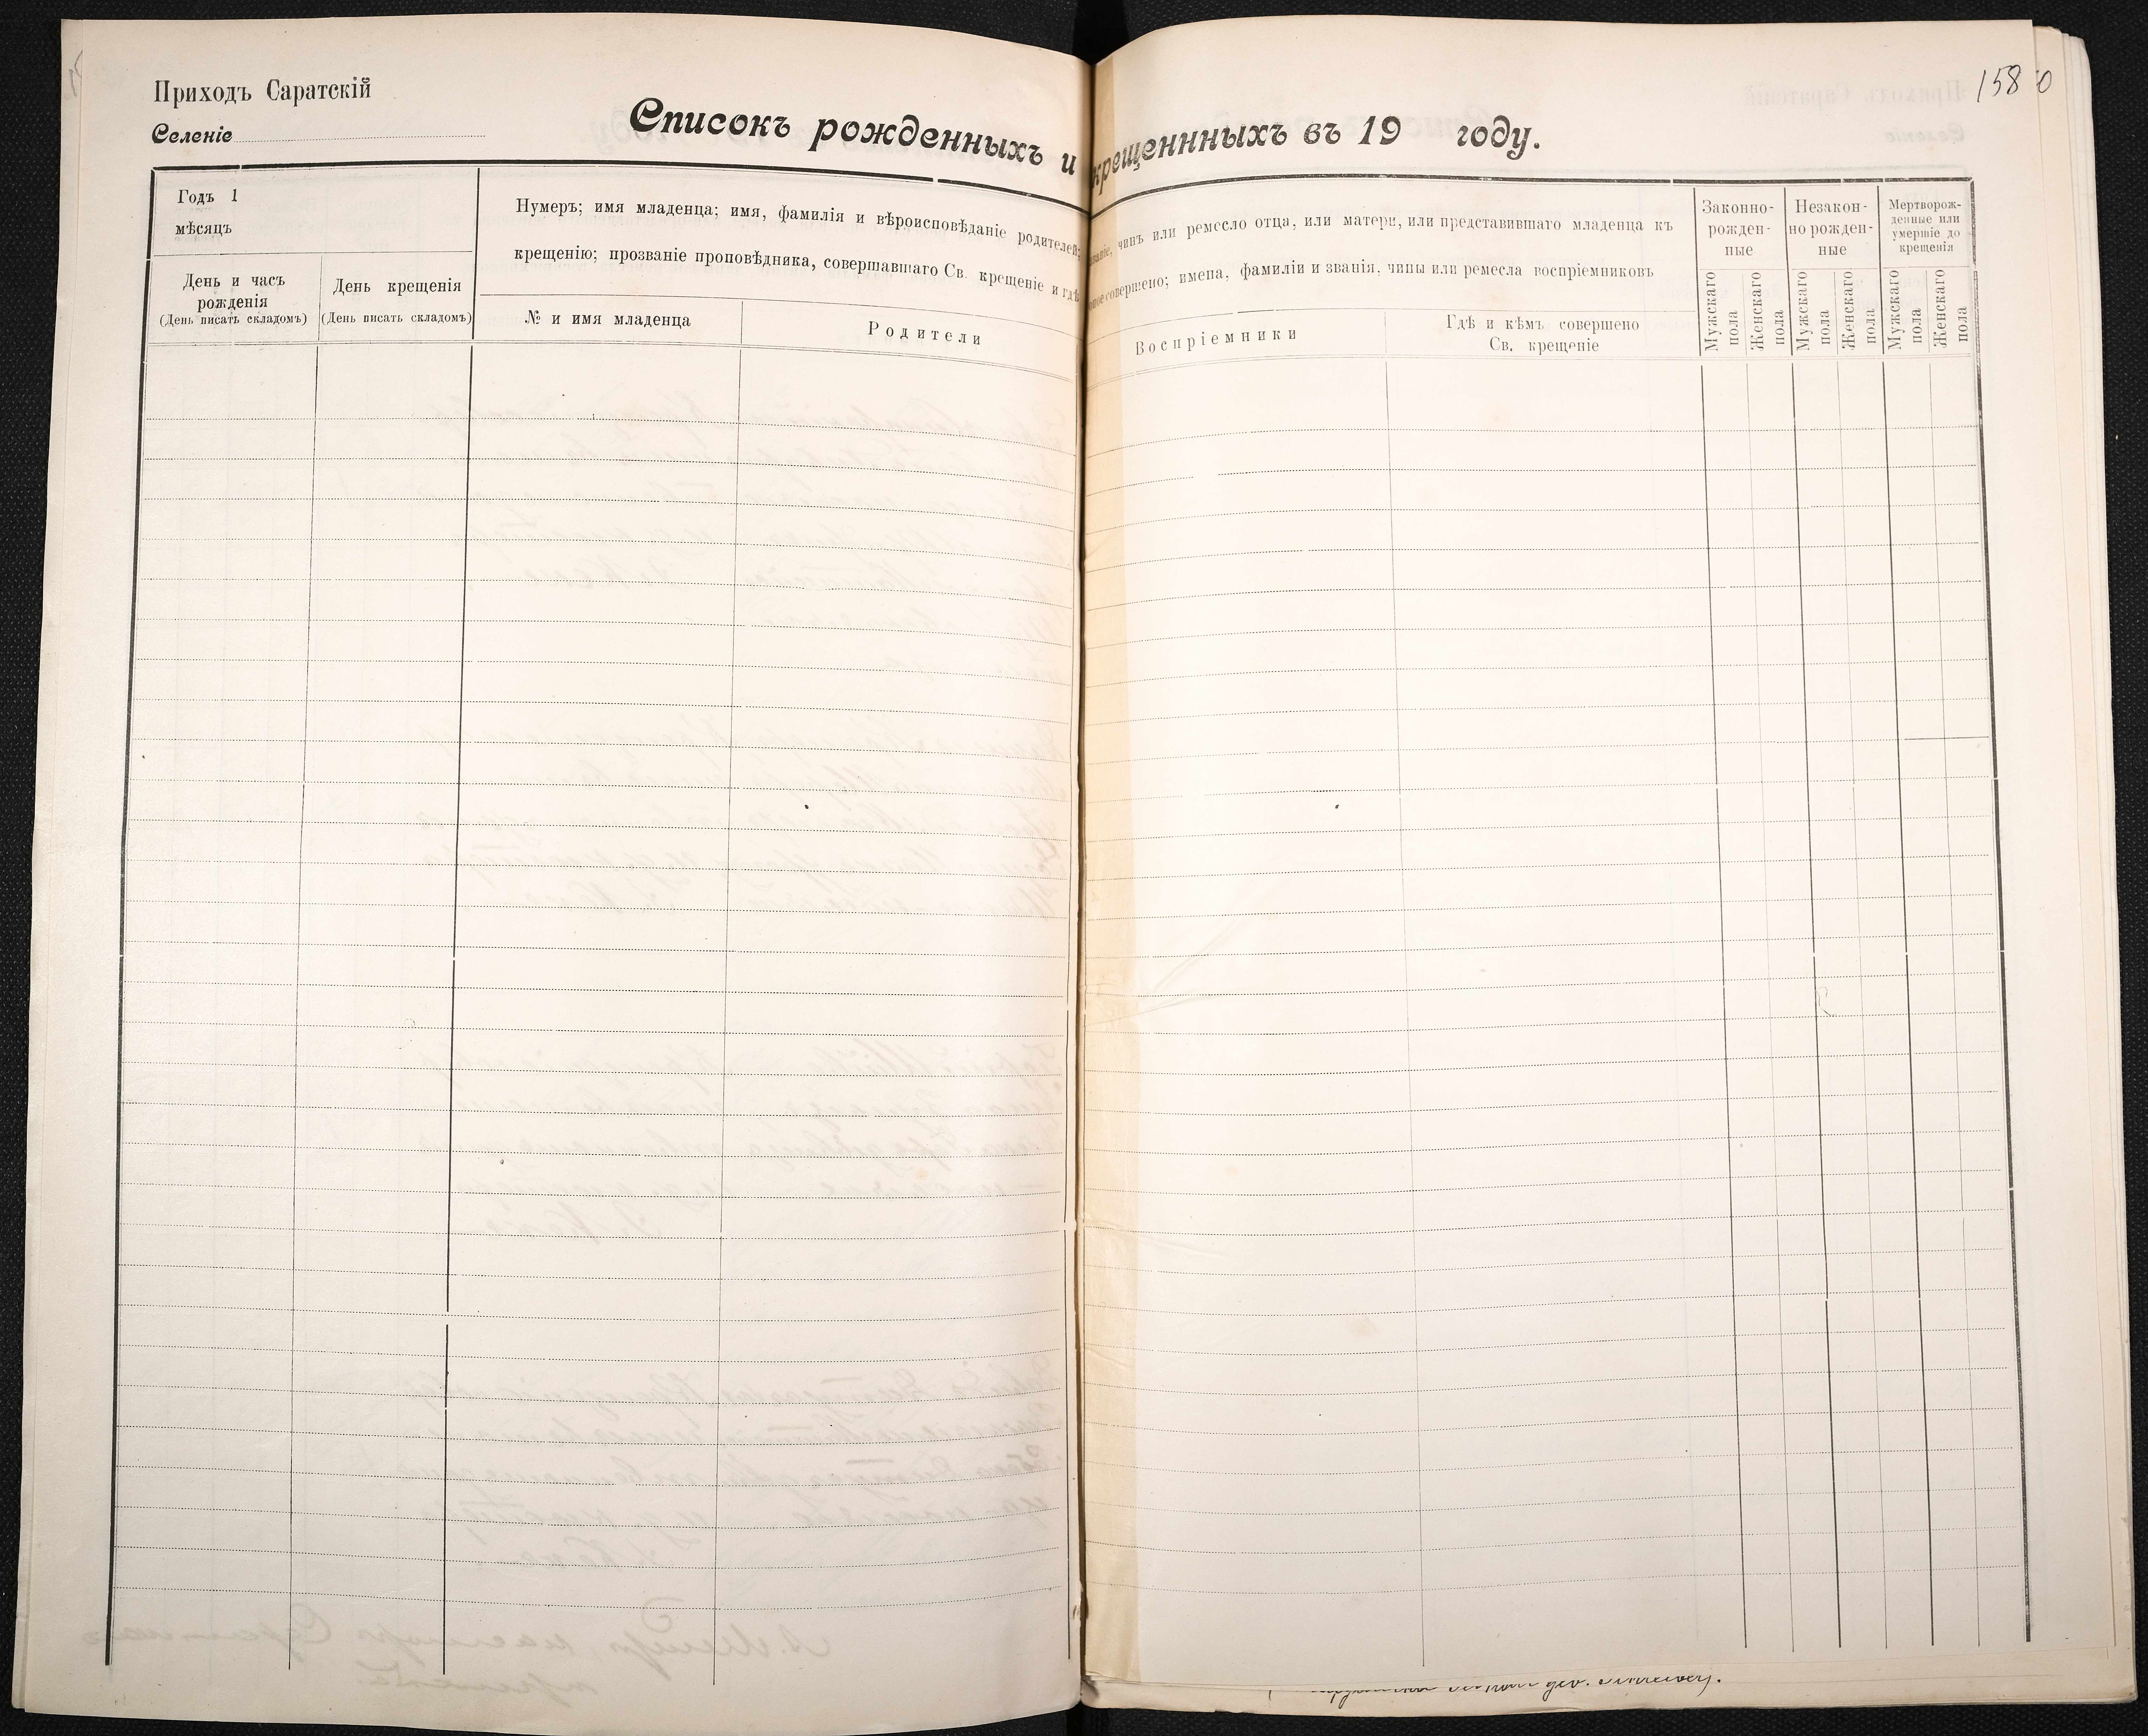 Приходъ Саратскій
Селеніе
158
0
Списокъ рожденныхъ и крещеннныхъ въ 19 году.
Годъ 1
мѣсяцъ
День и часъ
рожденія
(День писать складомъ)
День крещенія
(День писать складомъ)
Нумеръ; имя младенца; имя, фамилія и вѣроисповѣданіе родителей; чинъ или ремесло отца, или матери, или представившаго младенца къ
крещенію; прозваніе проповѣдника, совершавшаго Св. крещеніе и гдѣ совершено; имена, фамиліи и званія, чины или ремесла воспріемниковъ
№ и имя младенца
Родители
Воспріемники
Гдѣ и кѣмъ совершено
Св. крещеніе
Законно-
рожден-
ные
Незакон-
но рожден-
ные
Мертворож-
денные или
умершіе до
крещенія
Мужскаго
пола
Женскаго
пола
Мужскаго
пола
Женскаго
пола
Мужскаго
пола
Женскаго
пола
gev. Schreiber).